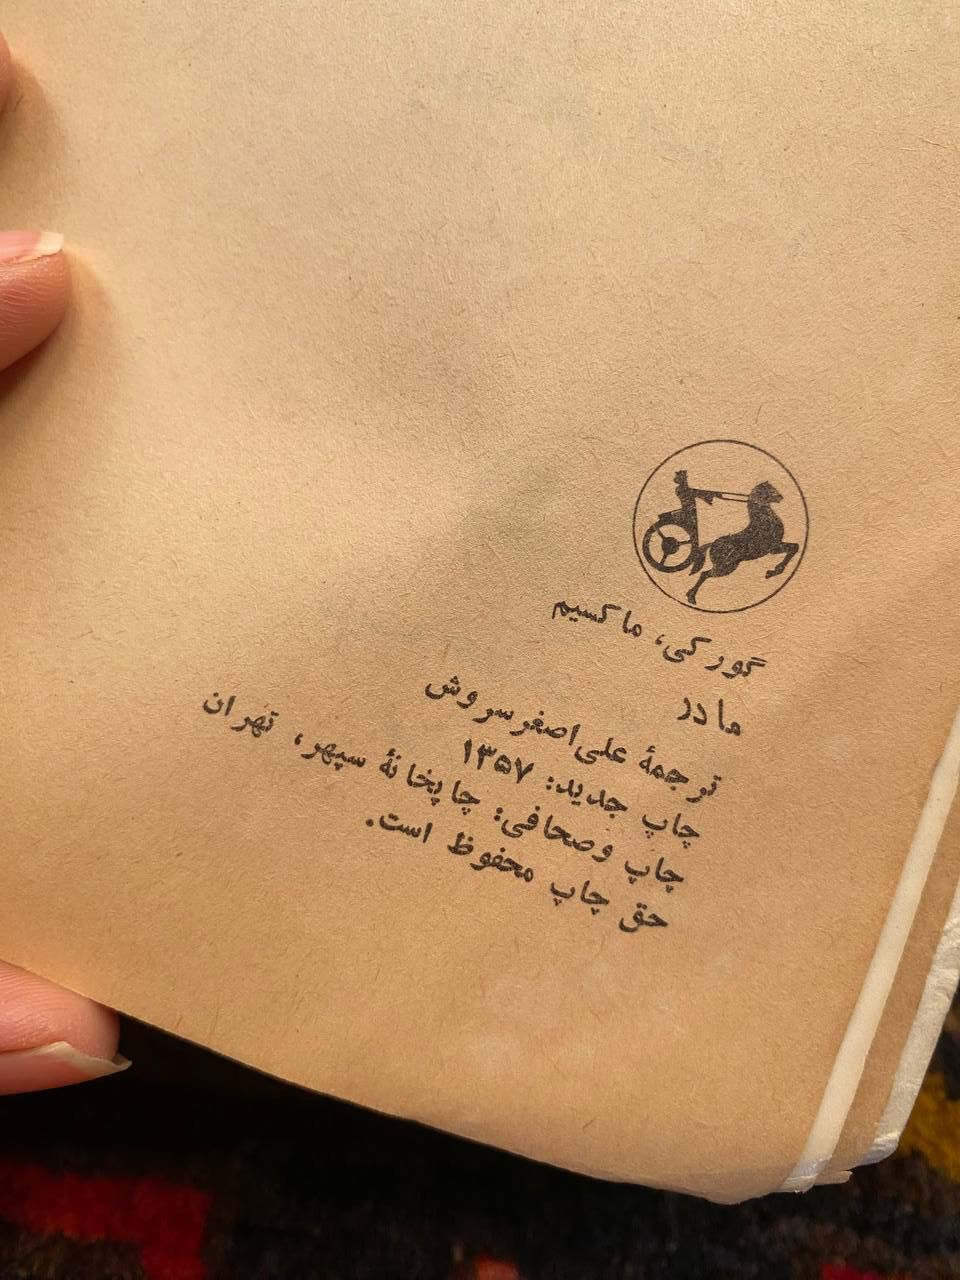 گورکی، ماکسیم
مادر
ترجمهٔ علی‌اصغر سروش
چاپ جدید: ۱۳۵۷
چاپ وصحافی: چاپخانهٔ سپهر، تهران
حق چاپ محفوظ است.